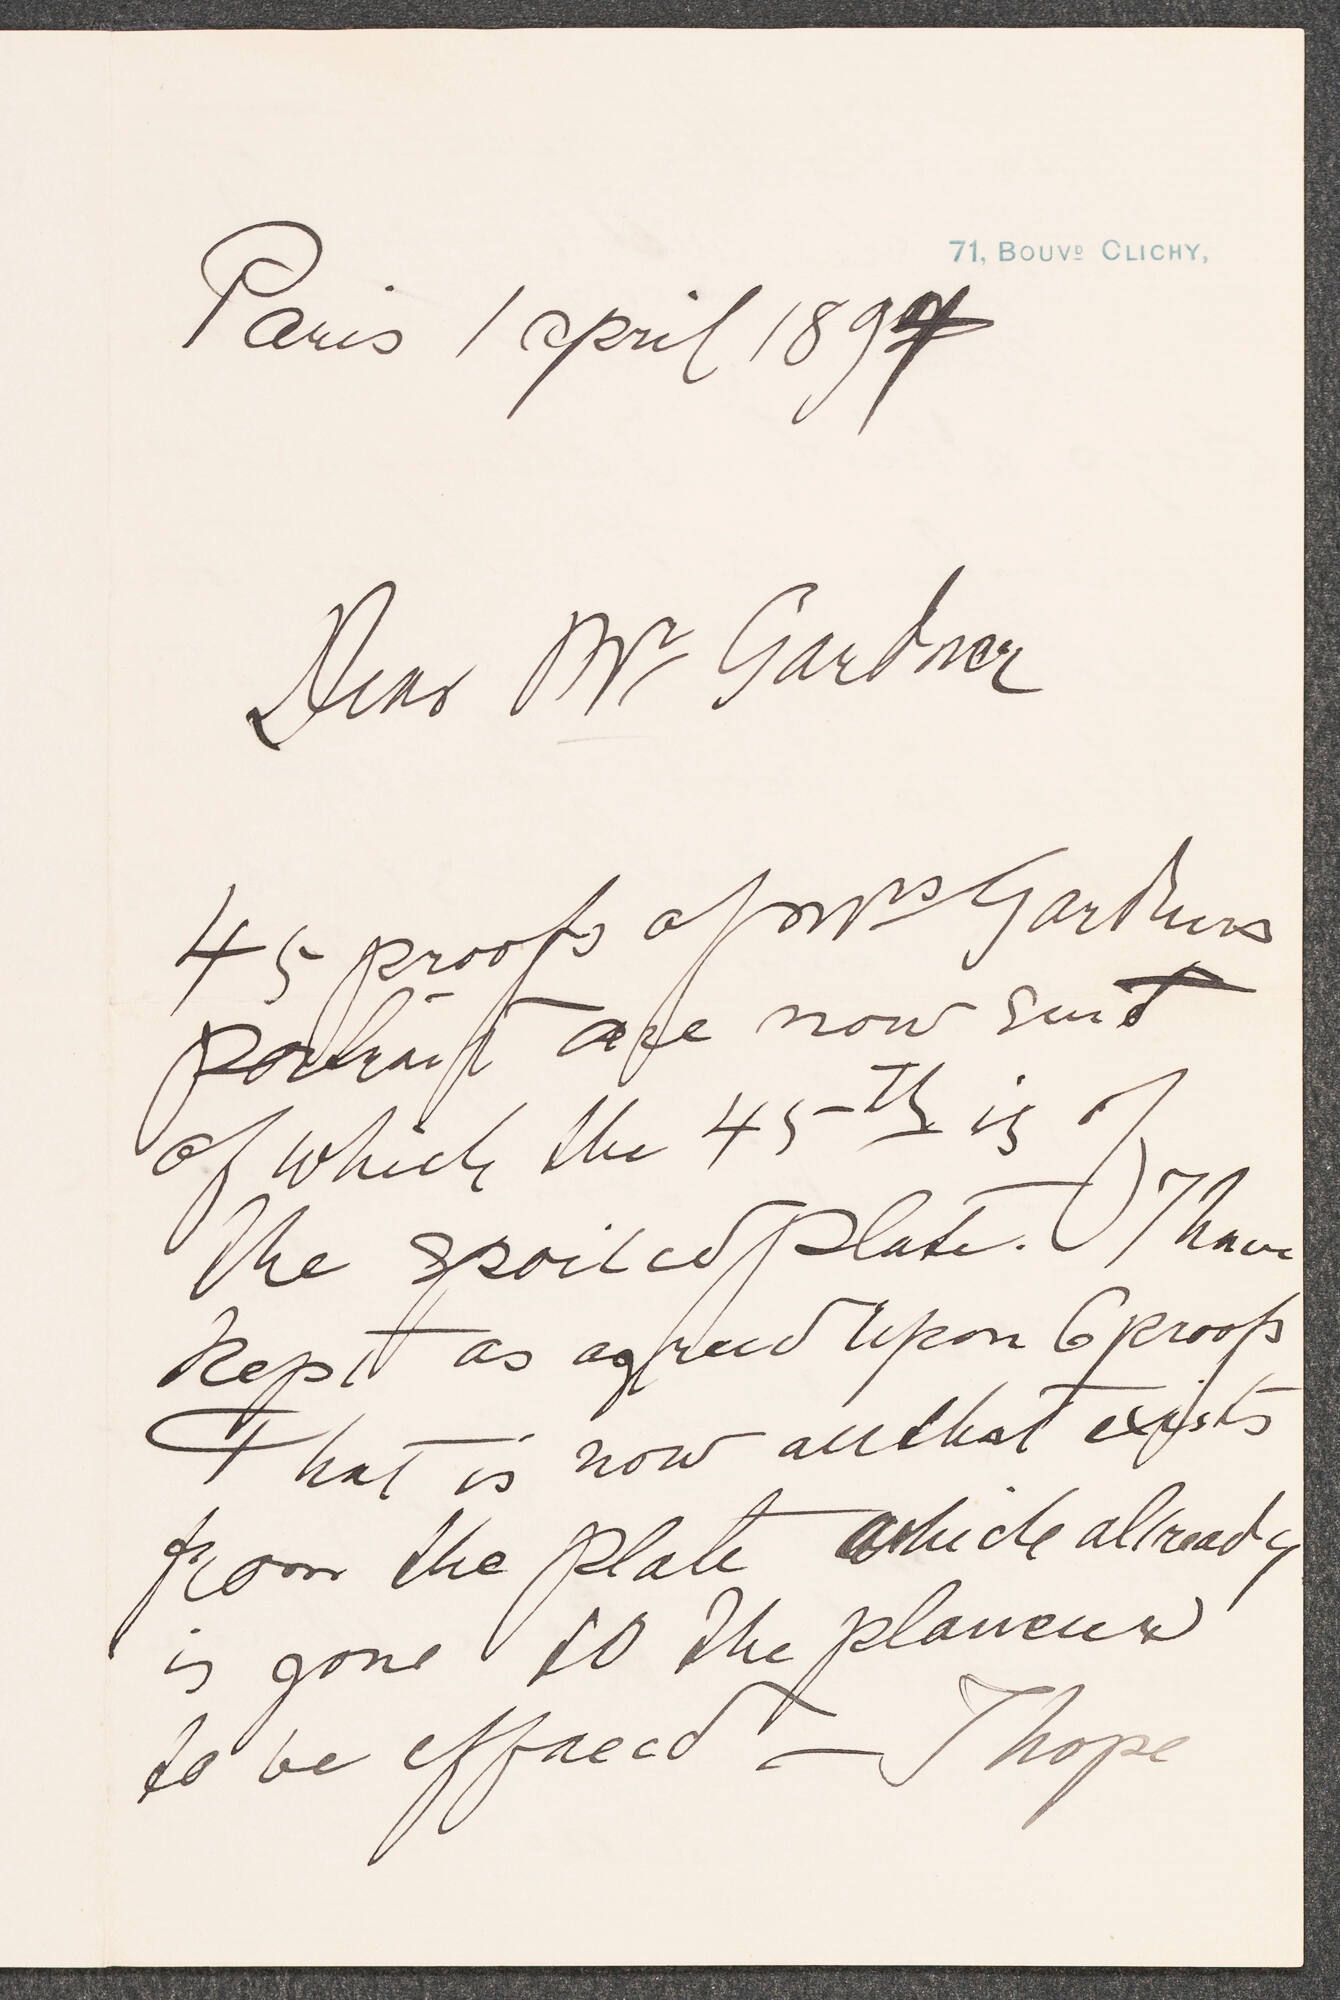 71, BOUVD CLICHY,
Paris 1 april 1894
Dear Mr Gardner
45 proofs of Mrs Gardners
portrait are now sent
of which the 45th is of
the spoiled plate. I have
kept as agreed upon 6 proofs
That is now all that exists
from the plate which allready
is gone to the planeur
to be effaced — I hope